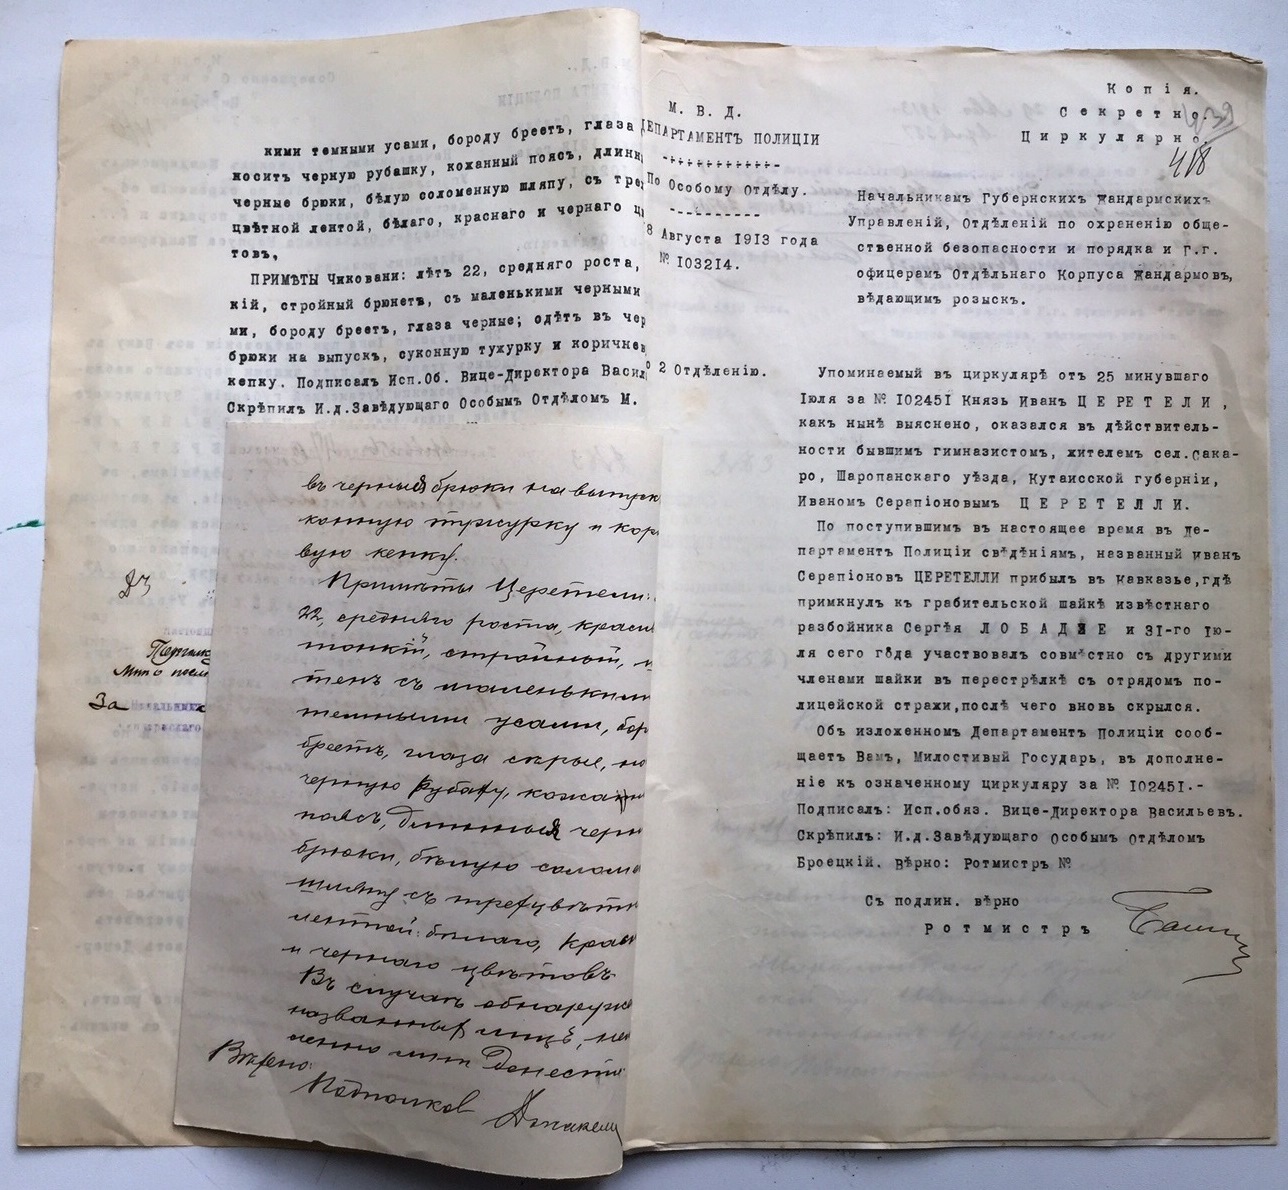 кими темными усами, бороду бреетъ, глаза
носитъ черную рубашку, кожанный поясъ, длинн
черные брюки, бѣлую соломенную шляпу, съ трех
цвѣтной лентой, бѣлаго, краснаго и чернаго цв
товъ,
ПРИМѢТЫ Чиковани: лѣтъ 22, средняго роста,
кій, стройный брюнетъ, съ маленькими черными
ми, бороду бреетъ, глаза черные; одѣтъ въ чер
брюки на выпускъ, суконную тужурку и коричнев
кепку. Подписалъ Исп.Об. Вице-Директора Васил
Скрѣпилъ И.д.Завѣдующаго Особымъ Отдѣломъ М.
въ черныя брюки на выпуск
конную тужурку и кор
вую кепку.
Примѣты Церетели:
22, средняго роста, краси
тонкій, стройный,
тенъ съ маленькими
темными усами, бор
бреетъ, глаза сѣрые, но
черную рубаху, кожан
поясъ, длинныя черн
брюки, бѣлую солом
шляпу съ трехцвѣтн
лентой: бѣлаго, красн
и чернаго цвѣтовъ
Въ случаѣ обнаруже
названныхъ лицъ, не
ленно мнѣ донести.
Вѣрно:
Подполков
За
М. В. Д.
ДЕПАРТАМЕНТЪ ПОЛИЦІИ
По Особому Отдѣлу.
8 Августа 1913 года
№ 103214.
о 2 Отдѣленію.
Копія.
Секретно.
Циркулярно.
418
Начальникамъ Губернскихъ Жандармскихъ
Управленій, Отдѣленій по охраненію обще-
ственной безопасности и порядка и г.г.
офицерамъ Отдѣльнаго Корпуса Жандармовъ,
вѣдающимъ розыскъ.
Упоминаемый въ циркулярѣ отъ 25 минувшаго
Іюля за № 102451 Князь Иванъ ЦЕРЕТЕЛИ,
какъ нынѣ выяснено, оказался въ дѣйствитель-
ности бывшимъ гимназистомъ, жителемъ сел.Сака-
ро, Шаропанскаго уѣзда, Кутаисской губерніи,
Иваномъ Серапіоновымъ ЦЕРЕТЕЛЛИ.
По поступившимъ въ настоящее время въ Де-
партаментъ Полиціи свѣдѣніямъ, названный Иванъ
Серапіоновъ ЦЕРЕТЕЛЛИ прибылъ въ Кавказье,гдѣ
примкнулъ къ грабительской шайкѣ извѣстнаго
разбойника Сергѣя ЛОБАДЗЕ и 31-го Ію-
ля сего года участвовалъ совмѣстно съ другими
членами шайки въ перестрѣлкѣ съ отрядомъ по-
лицейской стражи,послѣ чего вновь скрылся.
Объ изложенномъ Департаментъ Полиціи сооб-
щаетъ Вамъ, Милостивый Государь, въ дополне-
ніе къ означенному циркуляру за № 102451.-
Подписалъ: Исп.обяз. Вице-Директора Васильевъ.
Скрѣпилъ: И.д.Завѣдующаго Особымъ Отдѣломъ
Броецкій. Вѣрно: Ротмистръ №
Съ подлин. вѣрно
РОТМИСТРЪ